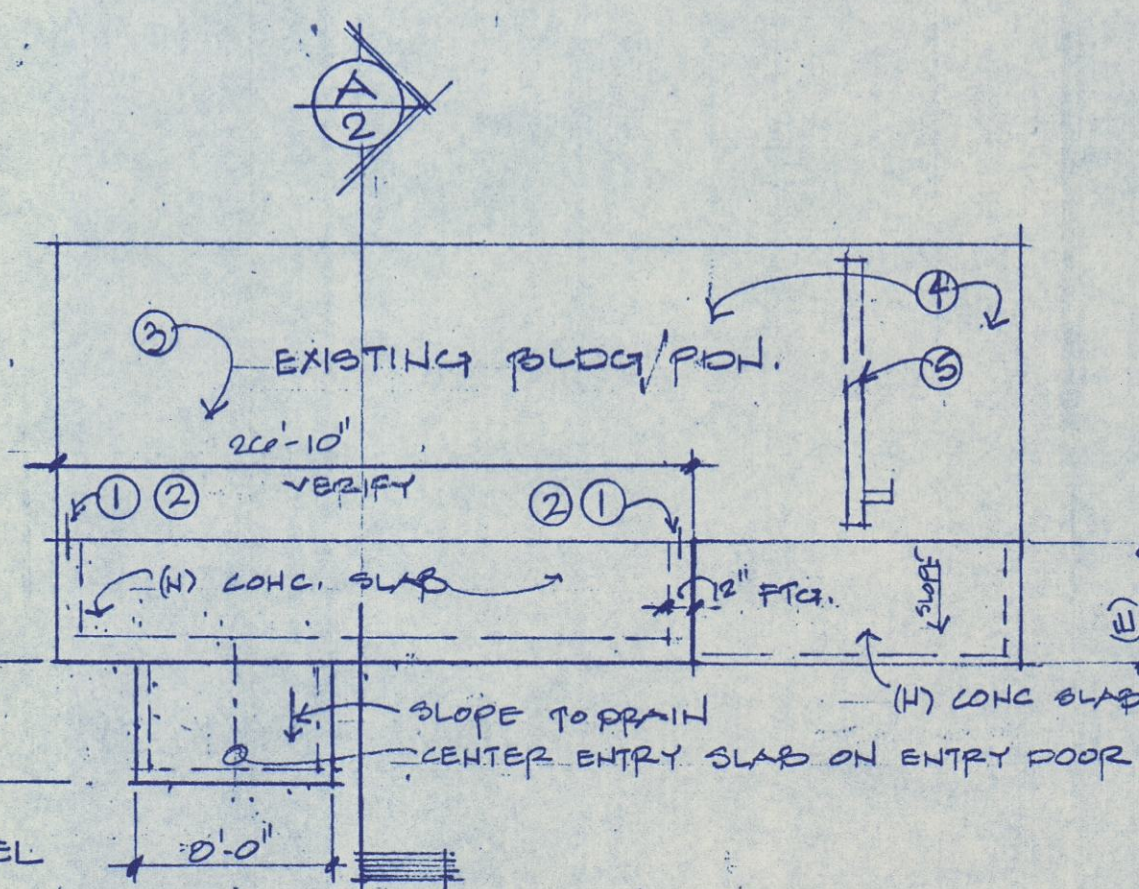 A
2
4
3
EXISTING BLDG/FDN.
5
26'-10"
VERIFY
1 2
2 1
(N) CONC. SLAB
12" FTG.
SLOPE
(E)
(N) CONC SLAB
SLOPE TO DRAIN
CENTER ENTRY SLAB ON ENTRY DOOR
EL
8'-0"